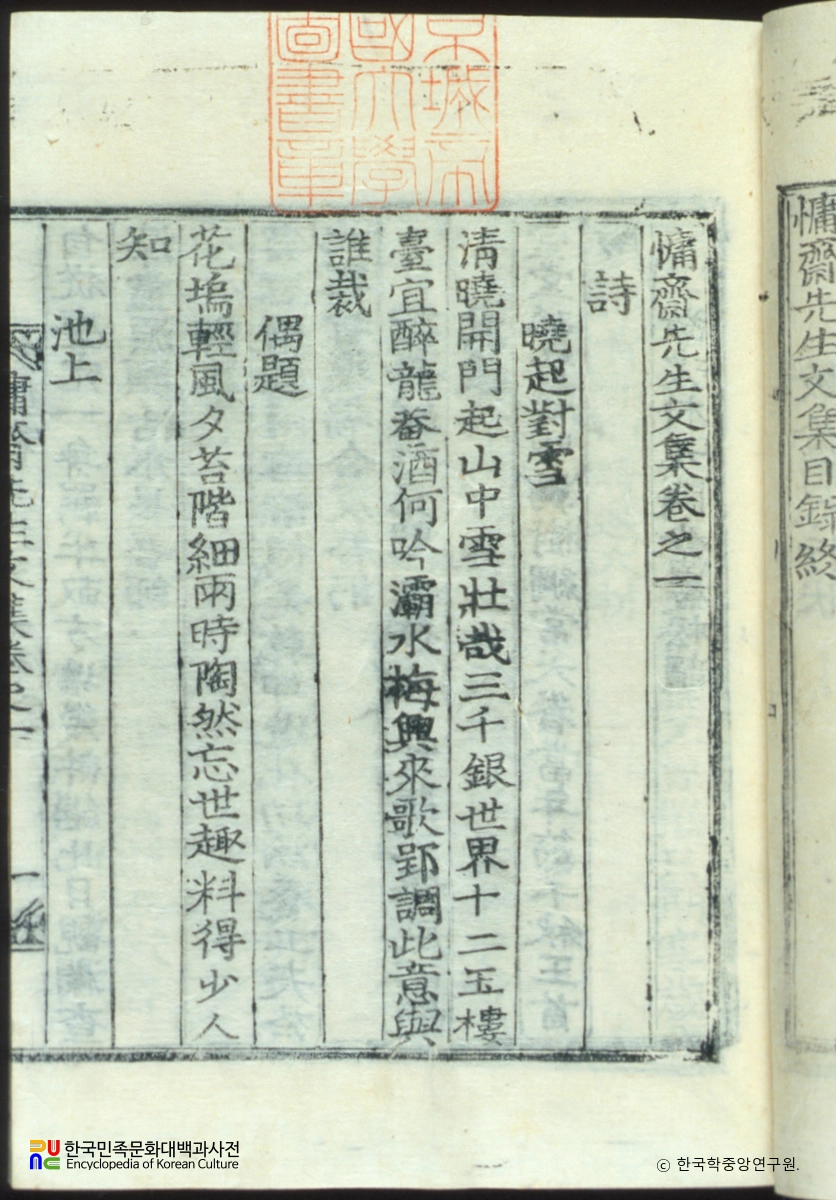 慵齋先生文集目錄終
慵齋先生文集卷之一
詩
曉起對雪
清曉開門起山中雪壯哉三千銀世界十二玉樓
臺宜醉龍畨酒何吟灞水梅興來歌郢調此意與
誰裁
偶題
花塢輕風夕苔階細雨時陶然忘世趣料得少人
知
池上
慵齋先生文集卷之一
一
京城帝
國大學
圖書章
한국민족문화대백과사전
Encyclopedia of Korean Culture
© 한국학중앙연구원.